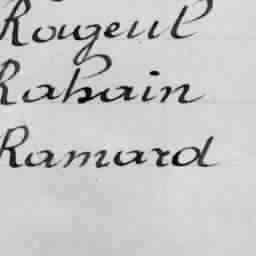 Rougeul
Rabain
Ramard